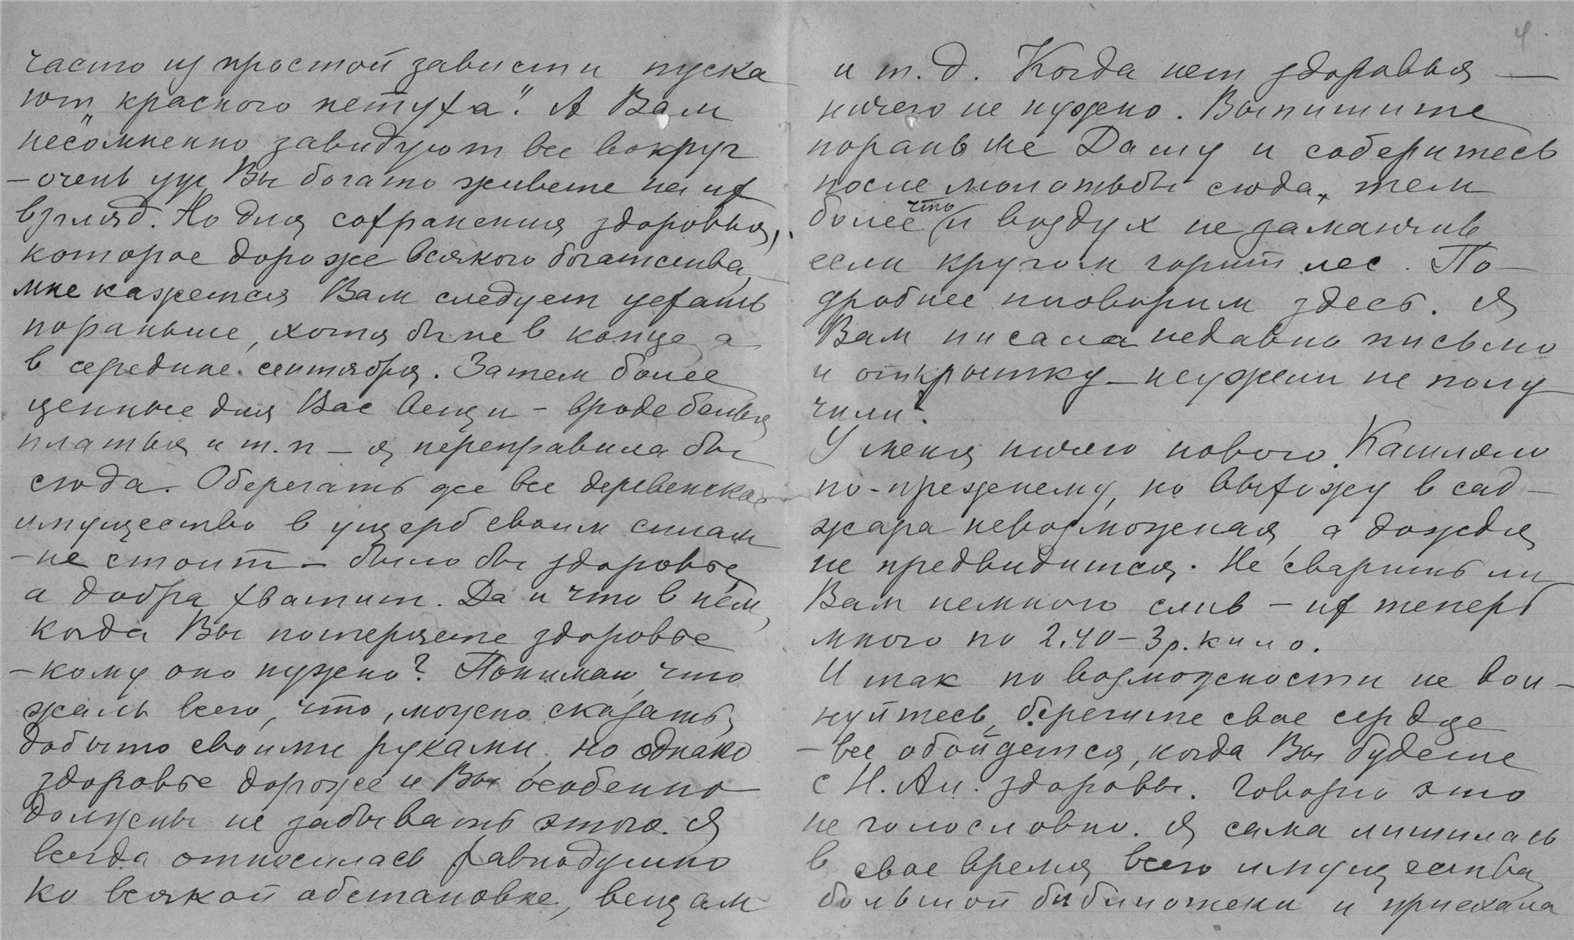 часто из простой зависти пуска
ют „красного петуха". А Вам
несомненно завидуют все вокруг
– очень уж Вы богато живете на их
взгляд. Но для сохранения здоровья,
которое дороже всякого богатства,
мне кажется Вам следует уехать
пораньше, хотя бы не в конце, а
в середине сентября. Затем более
ценные для Вас вещи – вроде белья
платья и т.п – я переправила бы
сюда. Оберегать же все деревенское
имущество в ущерб своим силам
– не стоит – было бы здоровье,
а добра хватит. Да и что в нем,
когда Вы потеряете здоровье
– кому оно нужно? Понимаю, что
жаль всего, что, можно сказать,
добыто своими руками, но однако
здоровье дороже и Вы особенно
должны не забывать этого. Я
всегда относилась равнодушно
ко всякой обстановке, вещам
4.
и т.д. Когда нет здоровья —
ничего не нужно. Выпишите
пораньше Дашу и соберитесь
после молотьбы сюда, тем
более что и воздух не заманчив
если кругом горит лес. По-
дробнее поговорим здесь. Я
Вам писала недавно письмо
и открытку – неужели не полу
чили?
У меня ничего нового. Кашляю
по-прежнему, но выхожу в сад –
жара невозможная, а дождя
не предвидится. Не сварить ли
Вам немного слив – их теперь
много по 2.40 – 3 р. кило.
И так по возможности не вол-
нуйтесь, берегите свое сердце
– все обойдется, когда Вы будете
с Н. Ан. здоровы. Говорю это
не голословно. Я сама лишилась
в свое время всего имущества,
большой библиотеки и приехала